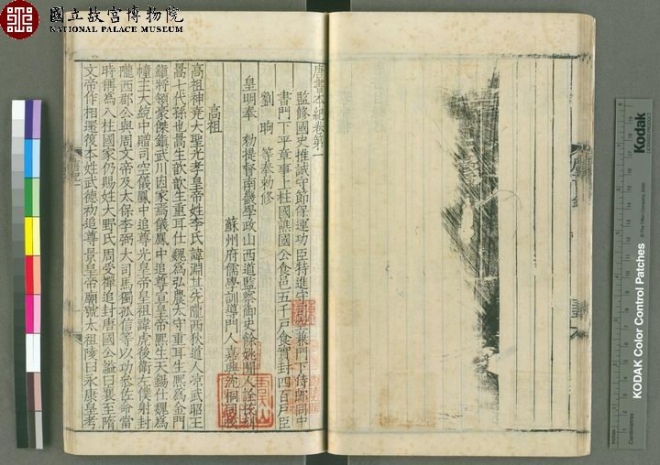 國立故宮博物院
NATIONAL PALACE MUSEUM
唐書本紀卷第一
監修國史推誠守節保運功臣特進守
門下侍郎同中
書門下平章事上柱國譙國公食邑五千戶食實封四百戶臣
劉昫 等奉勅修
皇明奉 勅提督南畿學政山西道監察御史餘姚聞人詮
蘇州府儒學訓導門人嘉興沈桐
高祖
高祖神堯大聖光孝皇帝姓李氏諱淵其先隴西狄道人涼武昭王
暠七代孫也暠生歆歆生重耳仕魏為弘農太守重耳生熙為金門
鎮將領豪傑鎮武川因家焉儀鳳中追尊宣皇帝熙生天錫仕魏為
幢主大統中贈司空儀鳳中追尊光皇帝皇祖諱虎後魏左僕射封
隴西郡公與周文帝及太保李弼大司馬獨孤信等以功參佐命當
時稱為八柱國家仍賜姓大野氏周受禪追封唐國公諡曰襄至隋
文帝作相還復本姓武德初追尊景皇帝廟號太祖陵曰永康皇考
Kodak
KODAK Color Control Patches